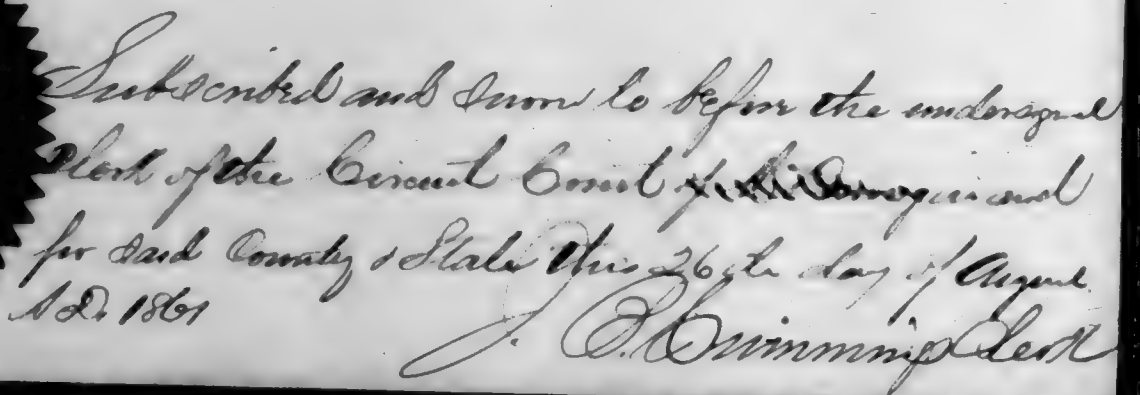 Subscribed and sworn to before the undersigned
Clerk of the Circuit Court in and
for said County & State this 26th day of August
A D. 1861
J. B. Cummings Clerk